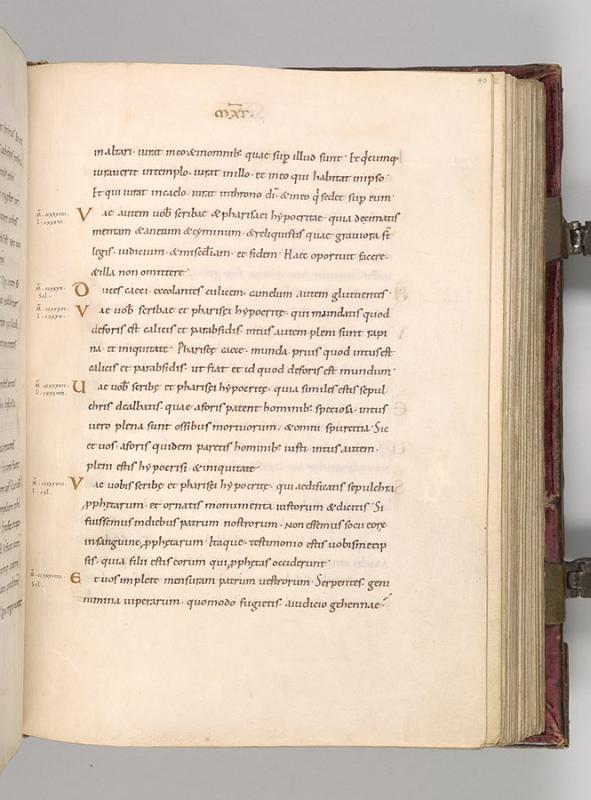 40
MAT·
in altari· iurat in eo & in omnib; quae sup̄ illud sunt· Et q̄cumq;
iurauerit in templo· iurat in illo· et in eo qui habitat in ipso·
Et qui iurat in caelo· iurat in throno dī· & in eo q̄ sedet sup eum·
Vae autem uob̄ scribae & pharisaei hypocritae· quia decimatis
mentam & anetum & cyminum· & reliquistis quae grauiora st̄
legis· iudicium· & misc̄diam· et fidem· Haec oportuit facere·
& illa non omittere·
Duces caeci· excolantes culicem· camelum autem gluttientes·
Vae uob̄ scribae et pharisei hypocritę· qui mundatis quod
deforis est calicis et parabsidis· intus autem pleni sunt rapi
na et iniquitate· Phariseę caece· munda prius quod intus est
calicis et parabsidis· ut fiat et id quod deforis est mundum·
Uae uob̄ scribę et pharisei hypocritę· quia similes estis sepul
chris dealbatis· quae aforis patent hominib; speciosa· intus
uero plena sunt ossibus mortuorum· & omni spurcitia· Sic
et uos· aforis quidem paretis hominib; iusti· intus autem·
pleni estis hypocrisi· & iniquitate·
Vae uobis scribę et pharisei hypocritę· qui aedificatis sepulchra
ꝓphetarum· et ornatis monumenta iustorum & dicitis· Si
fuissemus in diebus patrum nostrorum· non essemus socii eorꝝ
in sanguine ꝓphetarum· Itaque· testimonio estis uobismetip
sis· quia filii estis eorum qui ꝓphetas occiderunt·
Et uos implete mensuram patrum uestrorum· Serpentes· geni
mina uiperarum· quomodo fugietis· a iudicio gehennae·